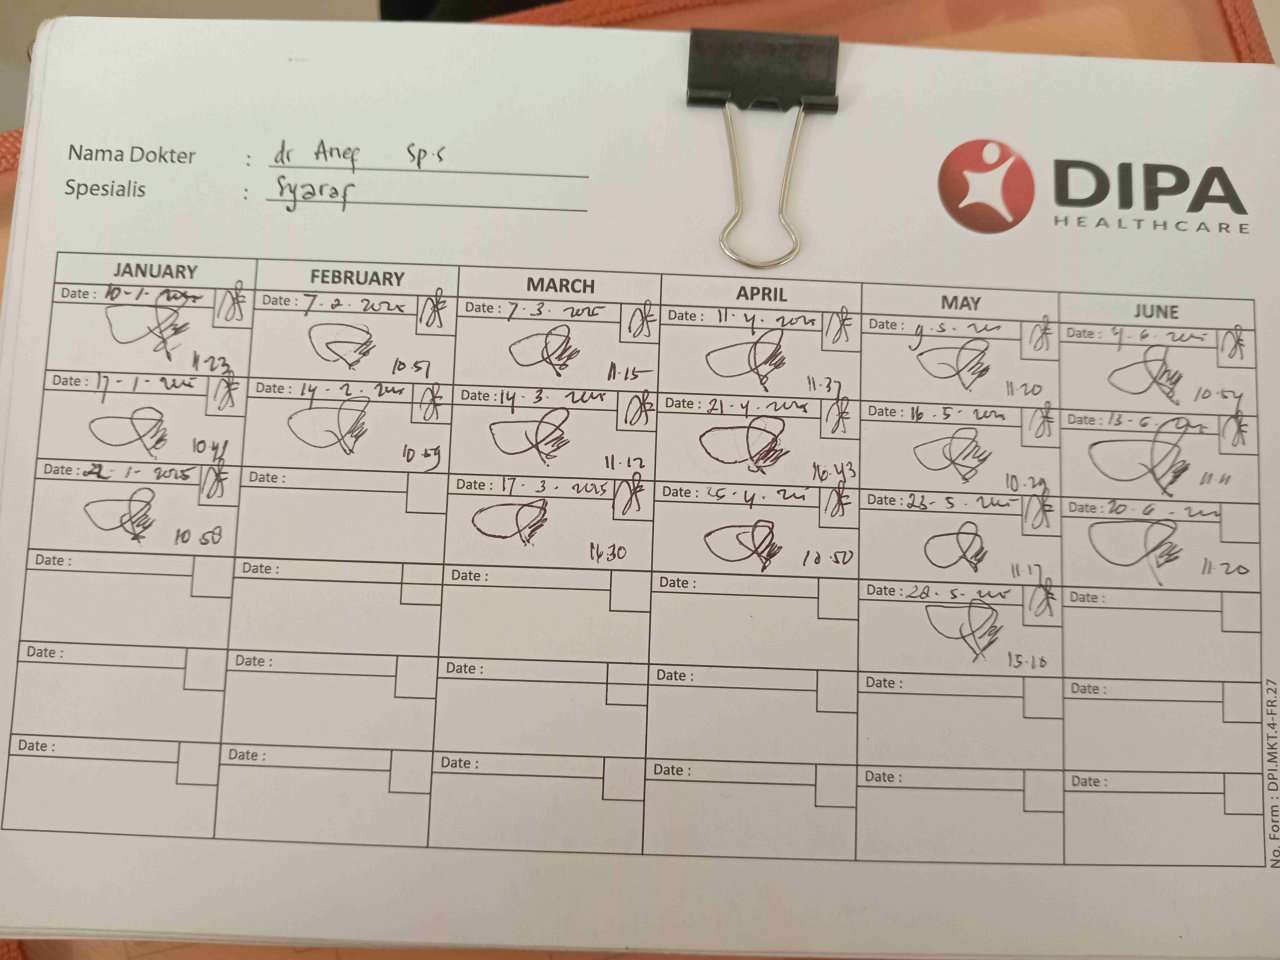 Nama Dokter : dr Anef Sp.S
Spesialis : Syaraf
DIPA
HEALTHCARE
JANUARY FEBRUARY MARCH APRIL MAY JUNE
Date : 10-1-2025 Date : 7-2-2025 Date : 7-3-2025 Date : 11-4-2025 Date : 9-5-2025 Date : -6-2025
11.23 10.51 11.15 11.37 11.20 10.54
Date : 17-1-2025 Date : 14-2-2025 Date : 14-3-2025 Date : 21-4-2025 Date : 16-5-2025 Date : 13-6-2025
10.41 10.59 11.12 16.43 10.29 11.11
Date : 22-1-2025 Date : Date : 17-3-2025 Date : 25-4-2025 Date : 23-5-2025 Date : 20-6-2025
10.58 16.30 10.50 11.17 11.20
Date : Date : Date : Date : Date : 28-5-2025 Date :
15.18
Date : Date : Date : Date : Date : Date :
Date : Date : Date : Date : Date : Date :
No. Form : DPI.MKT.4-FR.27